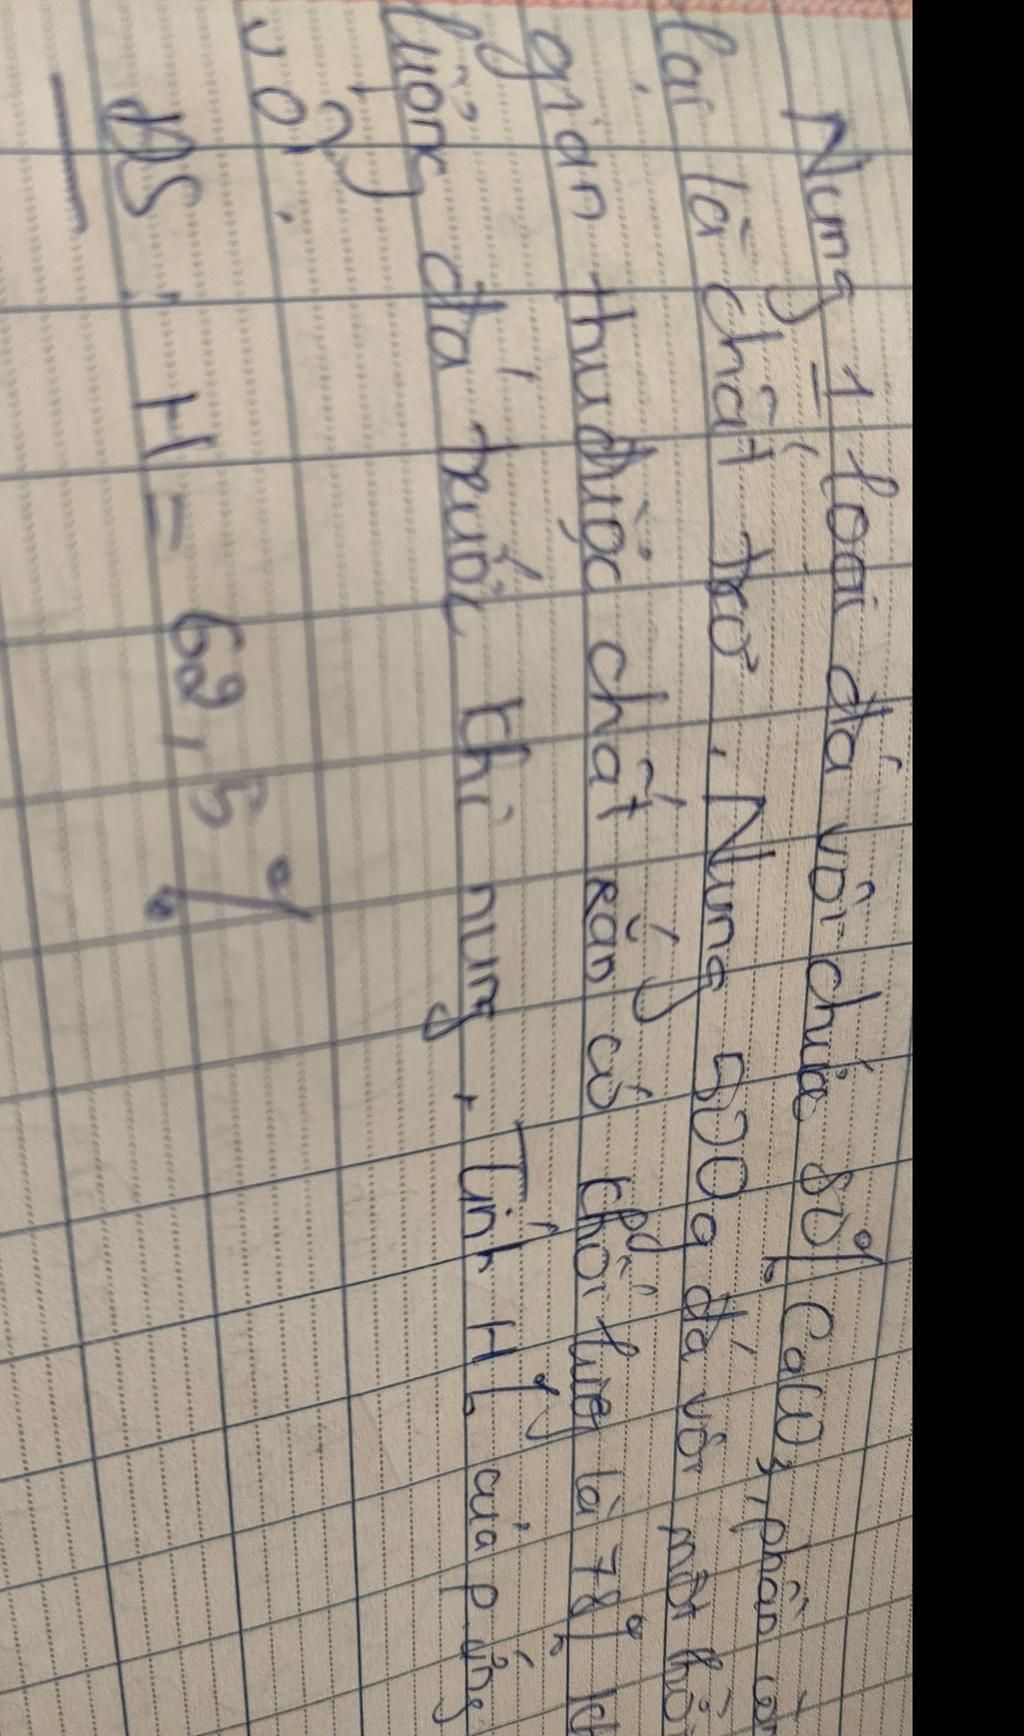 Nung 1 loại đá vôi chứa 80% CaCO3, phần còn
lại là chất trơ. Nung 500g đá vôi một thời
gian thu được chất rắn có khối lượng là 78% kh
lượng đá trước khi nung. Tính H% của p ứng
vôi.
ĐS: H = 62,5%